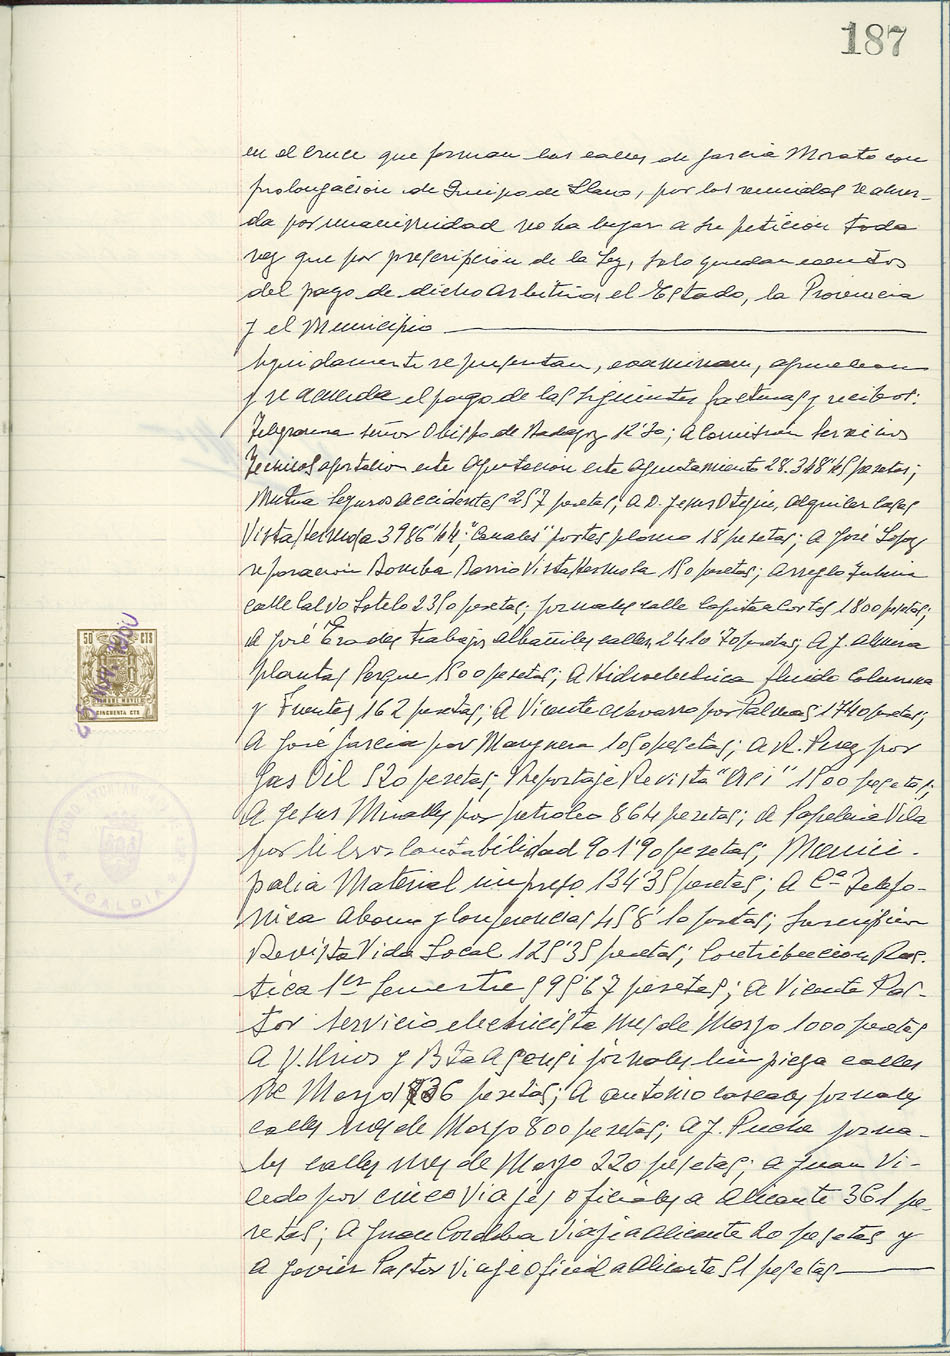 187
en el cruce que forman las calles de García Morato con
prolongación de Queipo de Llano, por los reunidos se acuer-
da por unanimidad no ha lugar a su petición toda
vez que por prescripción de la Ley, solo quedan exentos
del pago de dicho arbitrio, el Estado, la Provincia
y el Municipio
Seguidamente se presentan, examinan, aprueban
y se acuerda el pago de las siguientes facturas y recibos:
Telegrama señor Obispo de Badajoz 12'30; A Comisión Servicios
Técnicos aportación este Aportación este Ayuntamiento 28.348'45 pesetas;
Mutua Seguros accidentes 257 pesetas; A D. Jesús alquiler casas
Vista Hermosa 3986'44; "Canales" portes plomo 18 pesetas; A José López
reparación Bomba Barrio Vista Hermosa 150 pesetas; arreglo
calle Calvo Sotelo 2350 pesetas; jornales calle Capitán Cortés 1800 pesetas;
A José trabajos albañiles calles 2410'70 pesetas; A J.
plantas Parque 1500 pesetas; A Hidroeléctrica fluido Columna
y Fuentes 162 pesetas; A Vicente Navarro por Palmas 1740 pesetas;
A José García por 1050 pesetas; A R. Perez por
Gas Oil 520 pesetas; Reportaje Revista 1500 pesetas;
A Jesus Miralles por petroleo 864 pesetas; A Papeleria Vila
por libros contabilidad 901'90 pesetas; Munici-
palia Material impreso 134'35 pesetas; A Cª Telefo-
nica abono y conferencias 458'10 pesetas; Suscripción
Revista Vida Local 125'35 pesetas; Contribucion Rus-
tica 1er Semestre 595'67 pesetas; A Vicente Pas-
tor servicio electricista mes de Marzo 1000 pesetas
A V. y Bta jornales limpieza calles
de Marzo pesetas; A Antonio jornales
calles mes de Marzo 800 pesetas; A J. jorna-
les calles mes de Marzo 220 pesetas; A Juan Vi-
cedo por cinco viajes oficiales a Alicante 361 pe-
setas; A Juan Cordoba Viaje a Alicante 20 pesetas y
A Javier Pastor Viaje oficial a Alicante 51 pesetas
50 CTS
CINCUENTA CTS
ALCALDIA